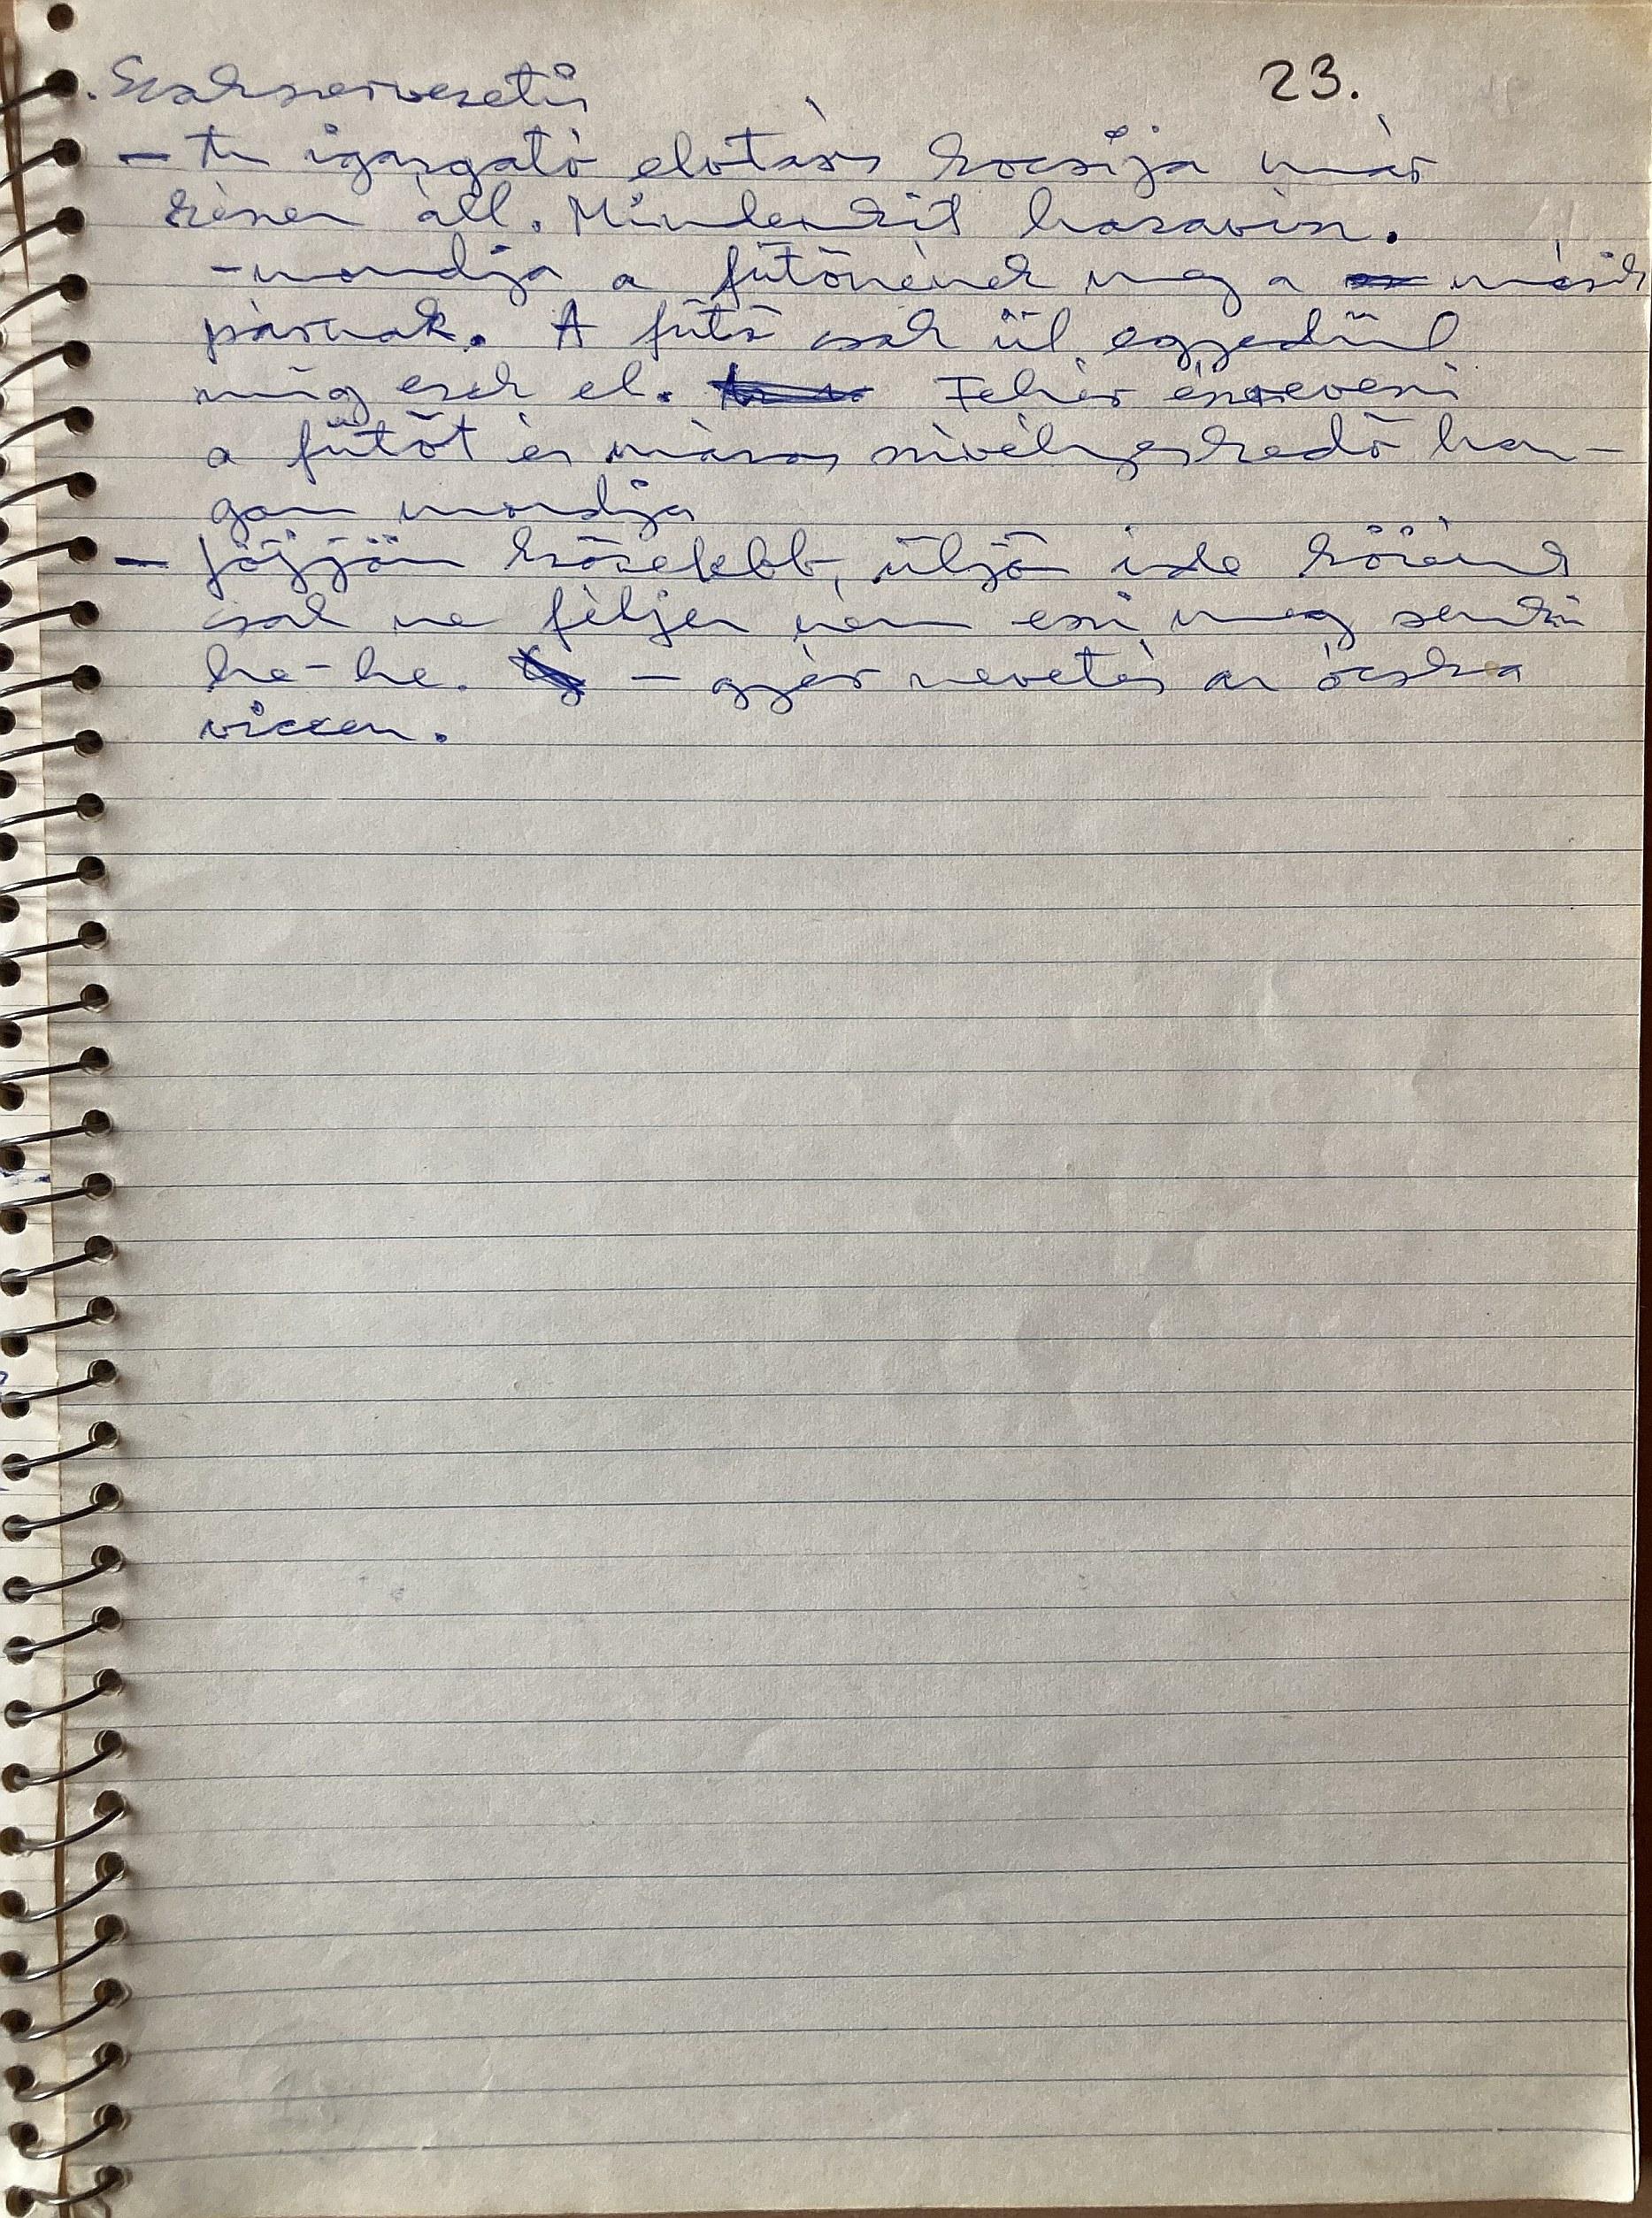 23.
Szakszervezeti
– Az igazgató elvtárs kocsija már
készen áll. Mindenkit hazavisz.
– mondja a fűtőnének meg a másik
párnak. A fűtő csak ül egyedül
míg ezek el. Fehér észreveszi
a fűtőt és mázas szívélyeskedő han-
gon mondja
– jöjjön közelebb, üljön ide közénk
csak ne féljen nem eszi meg senki
he-he. – gyér nevetés az ócska
viccen.